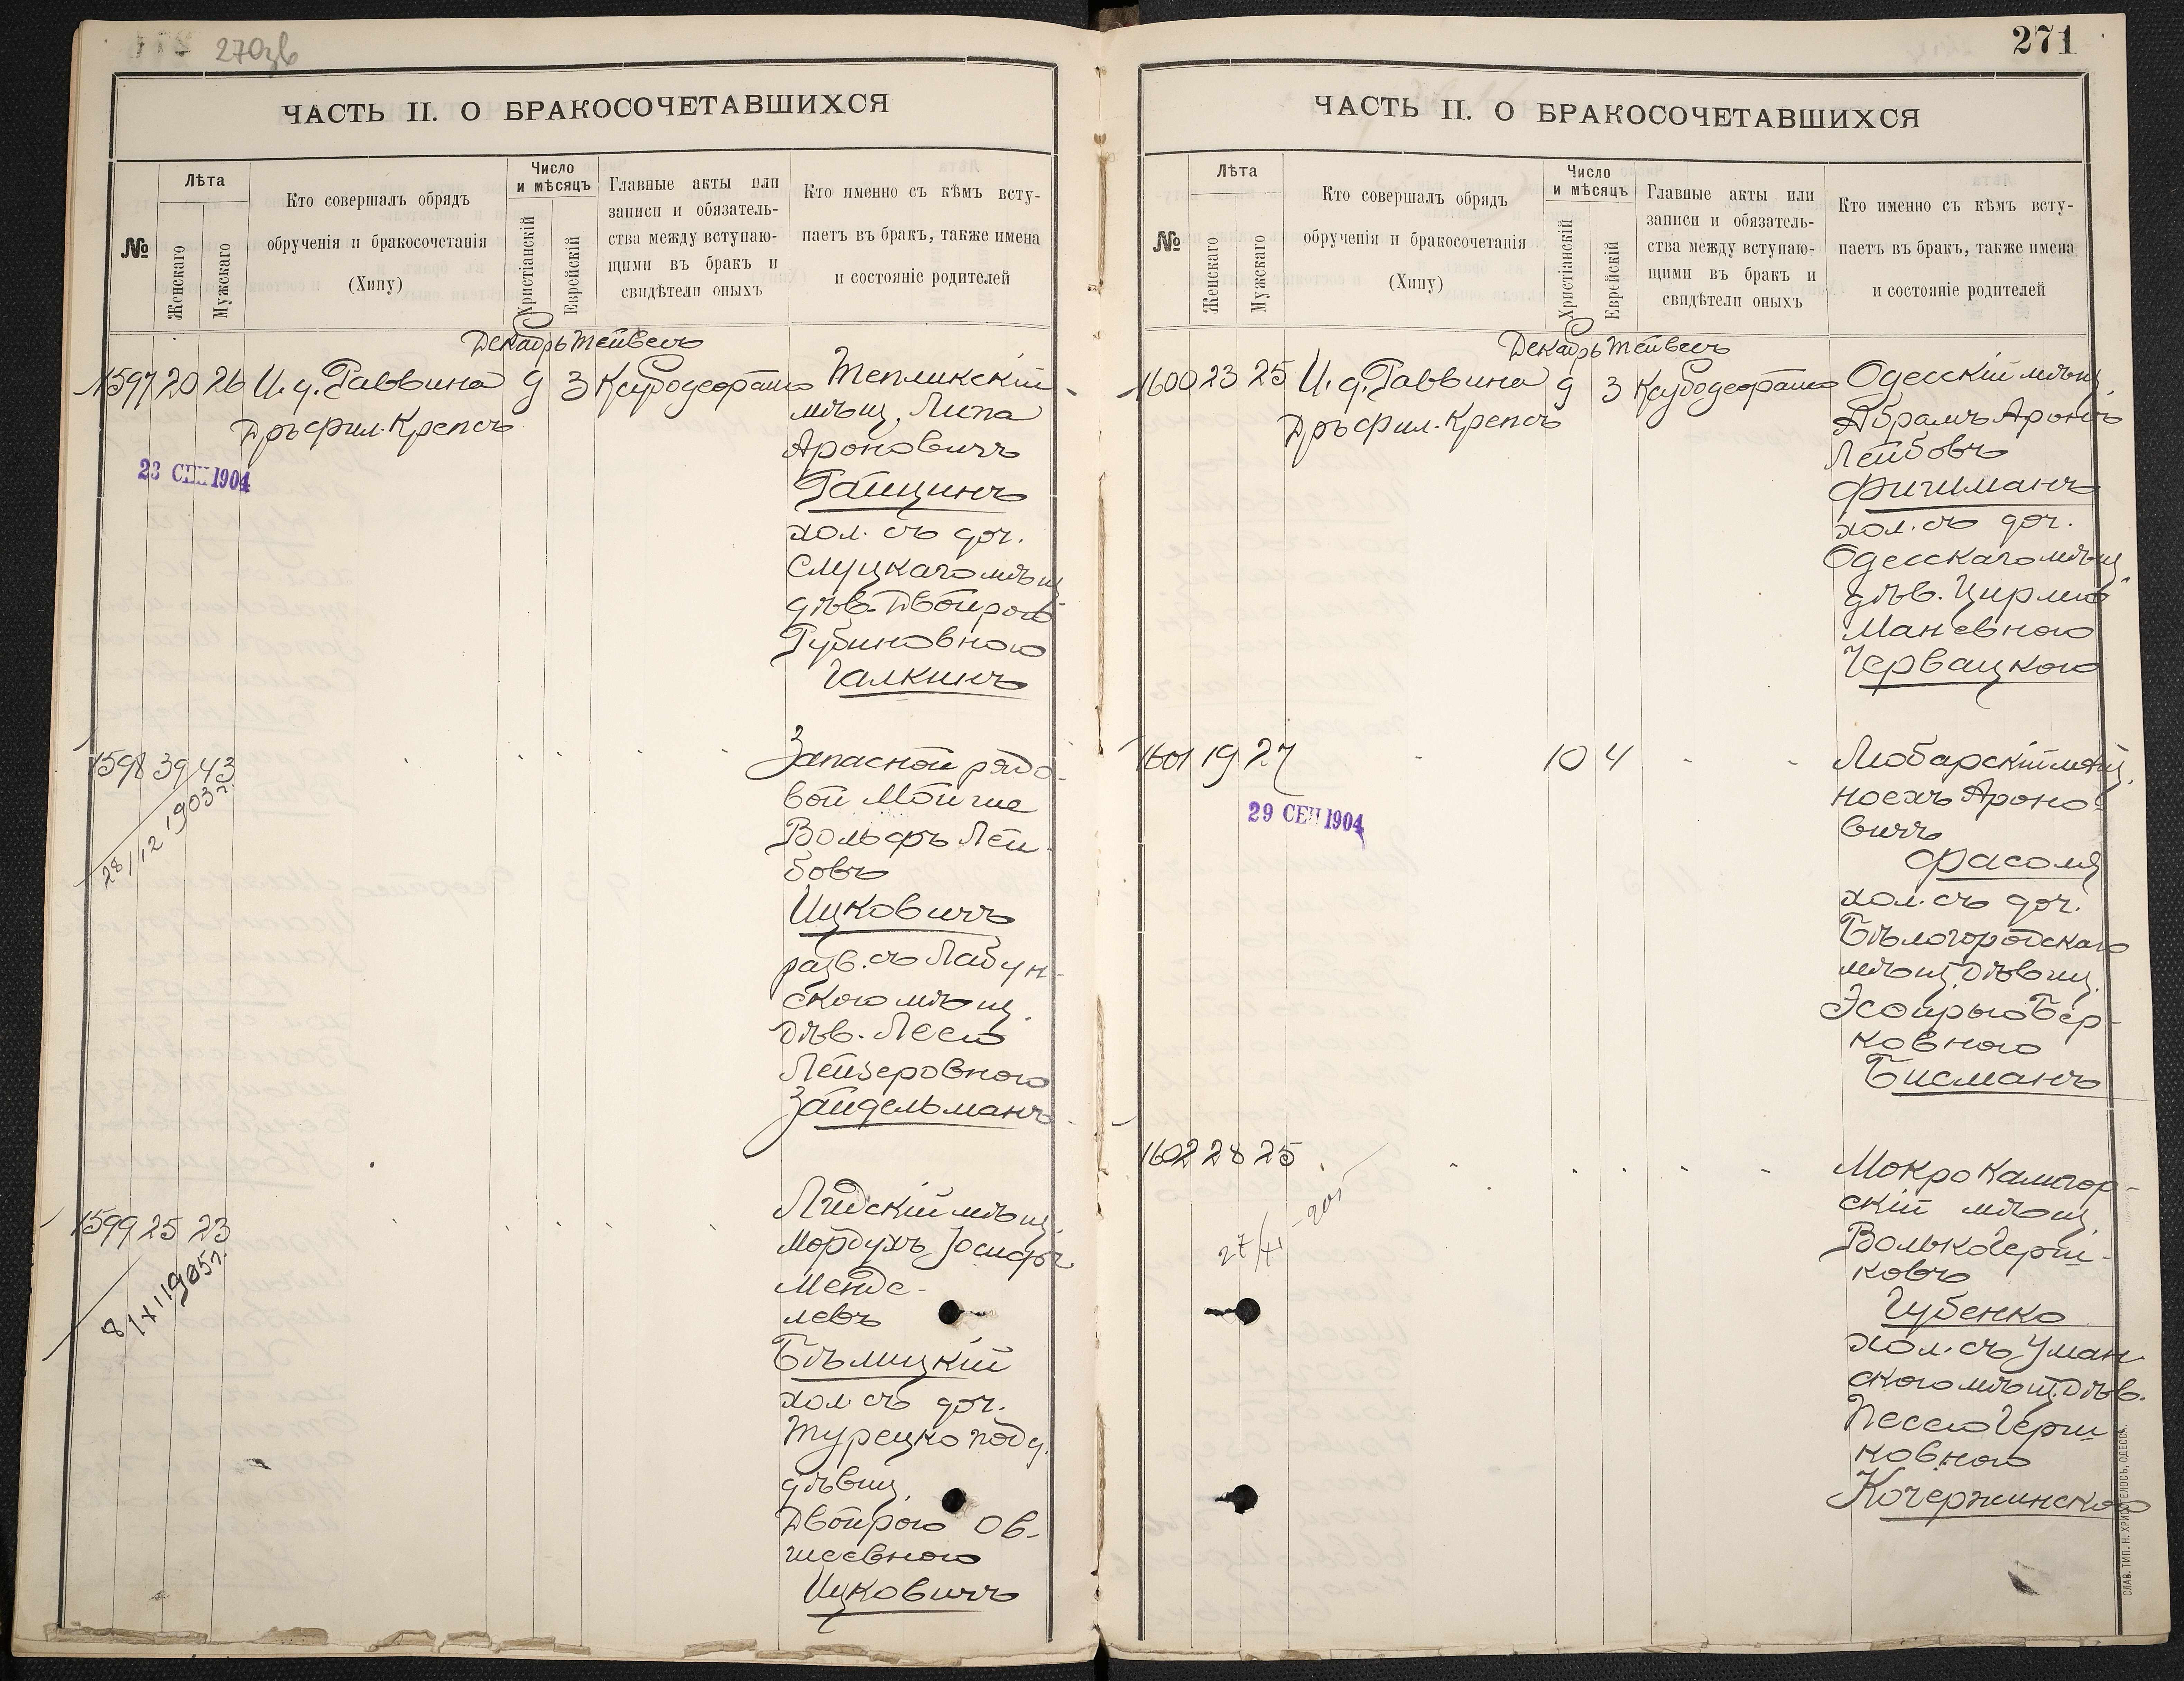 270зв
ЧАСТЬ II. О БРАКОСОЧЕТАВШИХСЯ
№
Лѣта
Женскаго
Мужскаго
Кто совершалъ обрядъ
обрученія и бракосочетанія
(Хипу)
Число
и мѣсяцъ
Христіанскій
Еврейскій
Главные акты или
записи и обязатель-
ства между вступаю-
щими въ бракъ и
свидѣтели оныхъ
Кто именно съ кѣмъ всту-
паетъ въ бракъ, также имена
и состояніе родителей
Декабрь Тейвесъ
1597 20 26 И. д. Раввина 9 3
Дръ Фил. Крепсъ
23 СЕН 1904
Тепликскій
мѣщ. Липа
Ароновичъ
Райцинъ
хол. съ доч.
Слуцкаго мѣщ
дѣв. Двойрою
Рубиновною
Галкинъ
1598 39 43
28/12 1903 г.
Запасной рядо-
вой Мойше
Вольфъ Лей-
бовъ
Ицковичъ
разв. съ Лабун-
скою мѣщ.
дѣв. Лесей
Лейзеровною
Зайдельманъ
1599 25 23
8/XI 1905 г.
Лидскій мѣщ.
Мордухъ Іосифъ
Менде-
левъ
Бѣлицкій
хол. съ доч.
Турецко подд.
дѣвиц.
Двойрою Ов-
шеевною
Ицковичъ
271
ЧАСТЬ II. О БРАКОСОЧЕТАВШИХСЯ
№
Лѣта
Женскаго
Мужскаго
Кто совершалъ обрядъ
обрученія и бракосочетанія
(Хипу)
Число
и мѣсяцъ
Христіанскій
Еврейскій
Главные акты или
записи и обязатель-
ства между вступаю-
щими въ бракъ и
свидѣтели оныхъ
Кто именно съ кѣмъ всту-
паетъ въ бракъ, также имена
и состояніе родителей
Декабрь Тейвесъ
1600 23 25 И. д. Раввина 9 3
Дръ Фил. Крепсъ
Одесскій мѣщ.
Абрамъ Аронъ
Лейбовъ
Фигиманъ
хол. съ доч.
Одесскаго мѣщ
дѣв. Цирлею
Маневною
Червацкою
1601 19 27 10 4
29 СЕН 1904
Любарскій мѣщ.
Ноехъ Ароно-
вичъ
Фасоля
хол. съ доч.
Бѣлогородскаго
мѣщ. дѣвиц.
Эсфирью Бер-
ковною
Бисманъ
1602 28 25
Мокро Калигор-
скій мѣщ.
Волько Герш-
ковъ
Губенко
хол. съ Уман-
скою мѣщ. дѣв.
Песею Герш-
ковною
Кочержинскою
СЛАВ. ТИП. Н. ХРИСОГЕЛОСЪ, ОДЕССА.